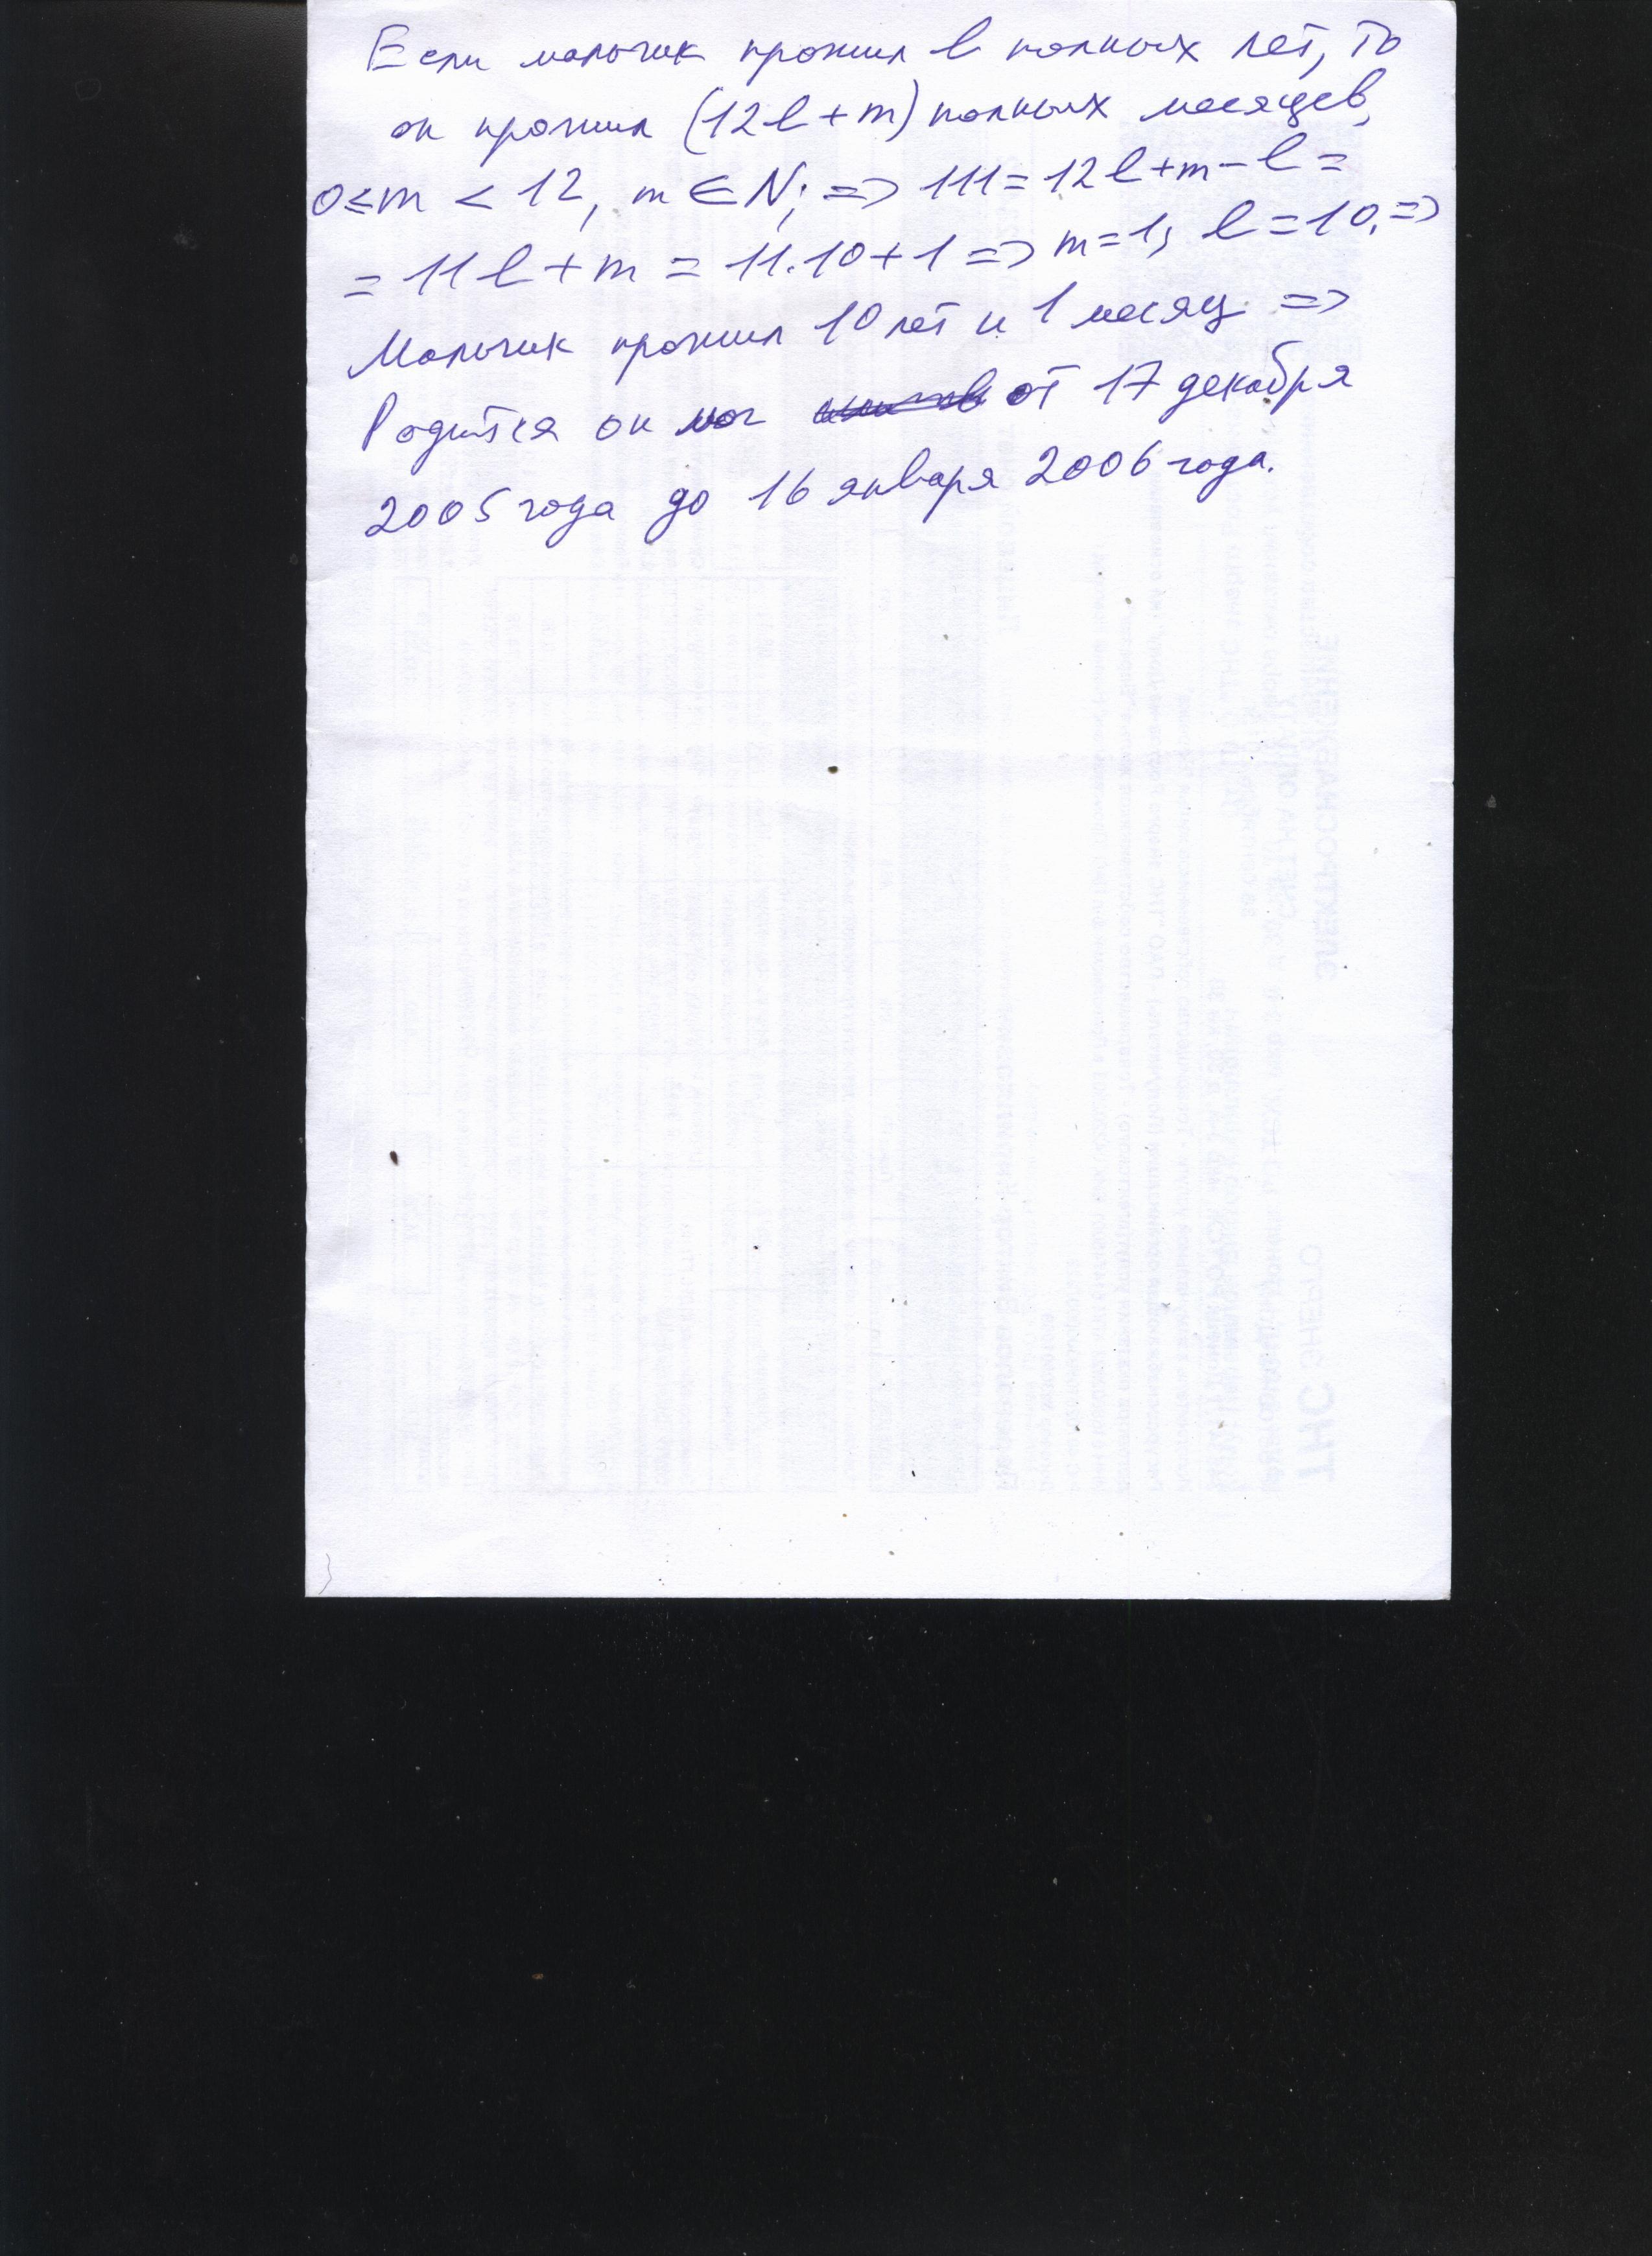 Если мальчик прожил l полных лет, то
он прожил (12l+m) полных месяцев,
0≤m < 12, m ∈ N; => 111=12l+m-l=
= 11l+m = 11·10+1 => m=1, l=10, =>
Мальчик прожил 10 лет и 1 месяц =>
Родится он мог от 17 декабря
2005 года до 16 января 2006 года.